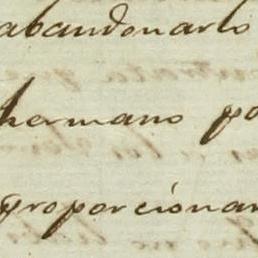 abandonarlo
hermano po
proporcionar